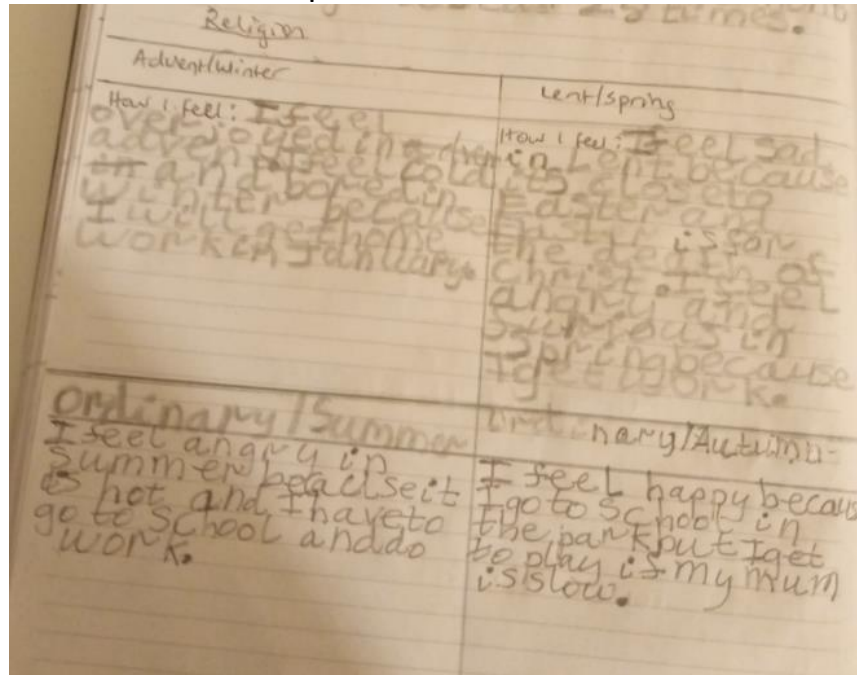 25 times.
Religion
Advent/Winter
How I feel: I feel
overjoyed in
advent. I feel cold
and bored in
winter because
I will get home
work in January.
Lent/Spring
How I feel: I feel sad
in Lent because
its close to
Easter and
Easter is for
the death of
Christ. I feel
angry and
furious in
spring because
I get work.
Ordinary/Summer
I feel angry in
summer beacuse it
is hot and I have to
go to school and do
work.
Ordinary/Autumn
I feel happy becaus
I go to school in
the park but I get
to play if my mum
is slow.